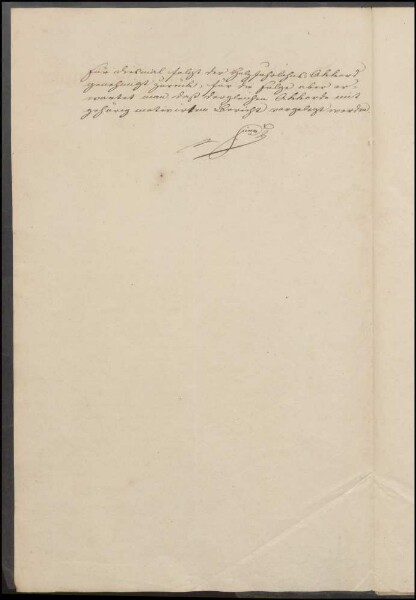 Für diesmal folgt der Holzfuhrlohns Akkord
genehmigt zurück, für die Folge aber er-
wartet man daß dergleichen Akkorde mit
gehörig motivirtem Bericht vorgelegt werden